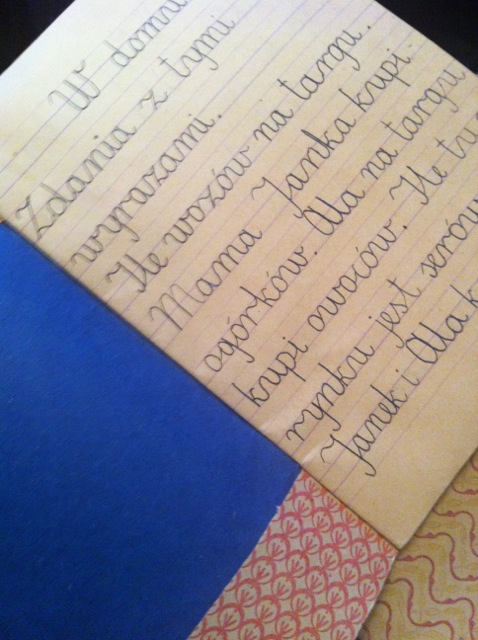 W domu
Zdania z tymi
wyrazami.
Ile wozów na targu.
Mama Janka kupi
ogórków. Ala na targu
kupi owoców. Ile tu
rynku jest serów
Janek i Ala k